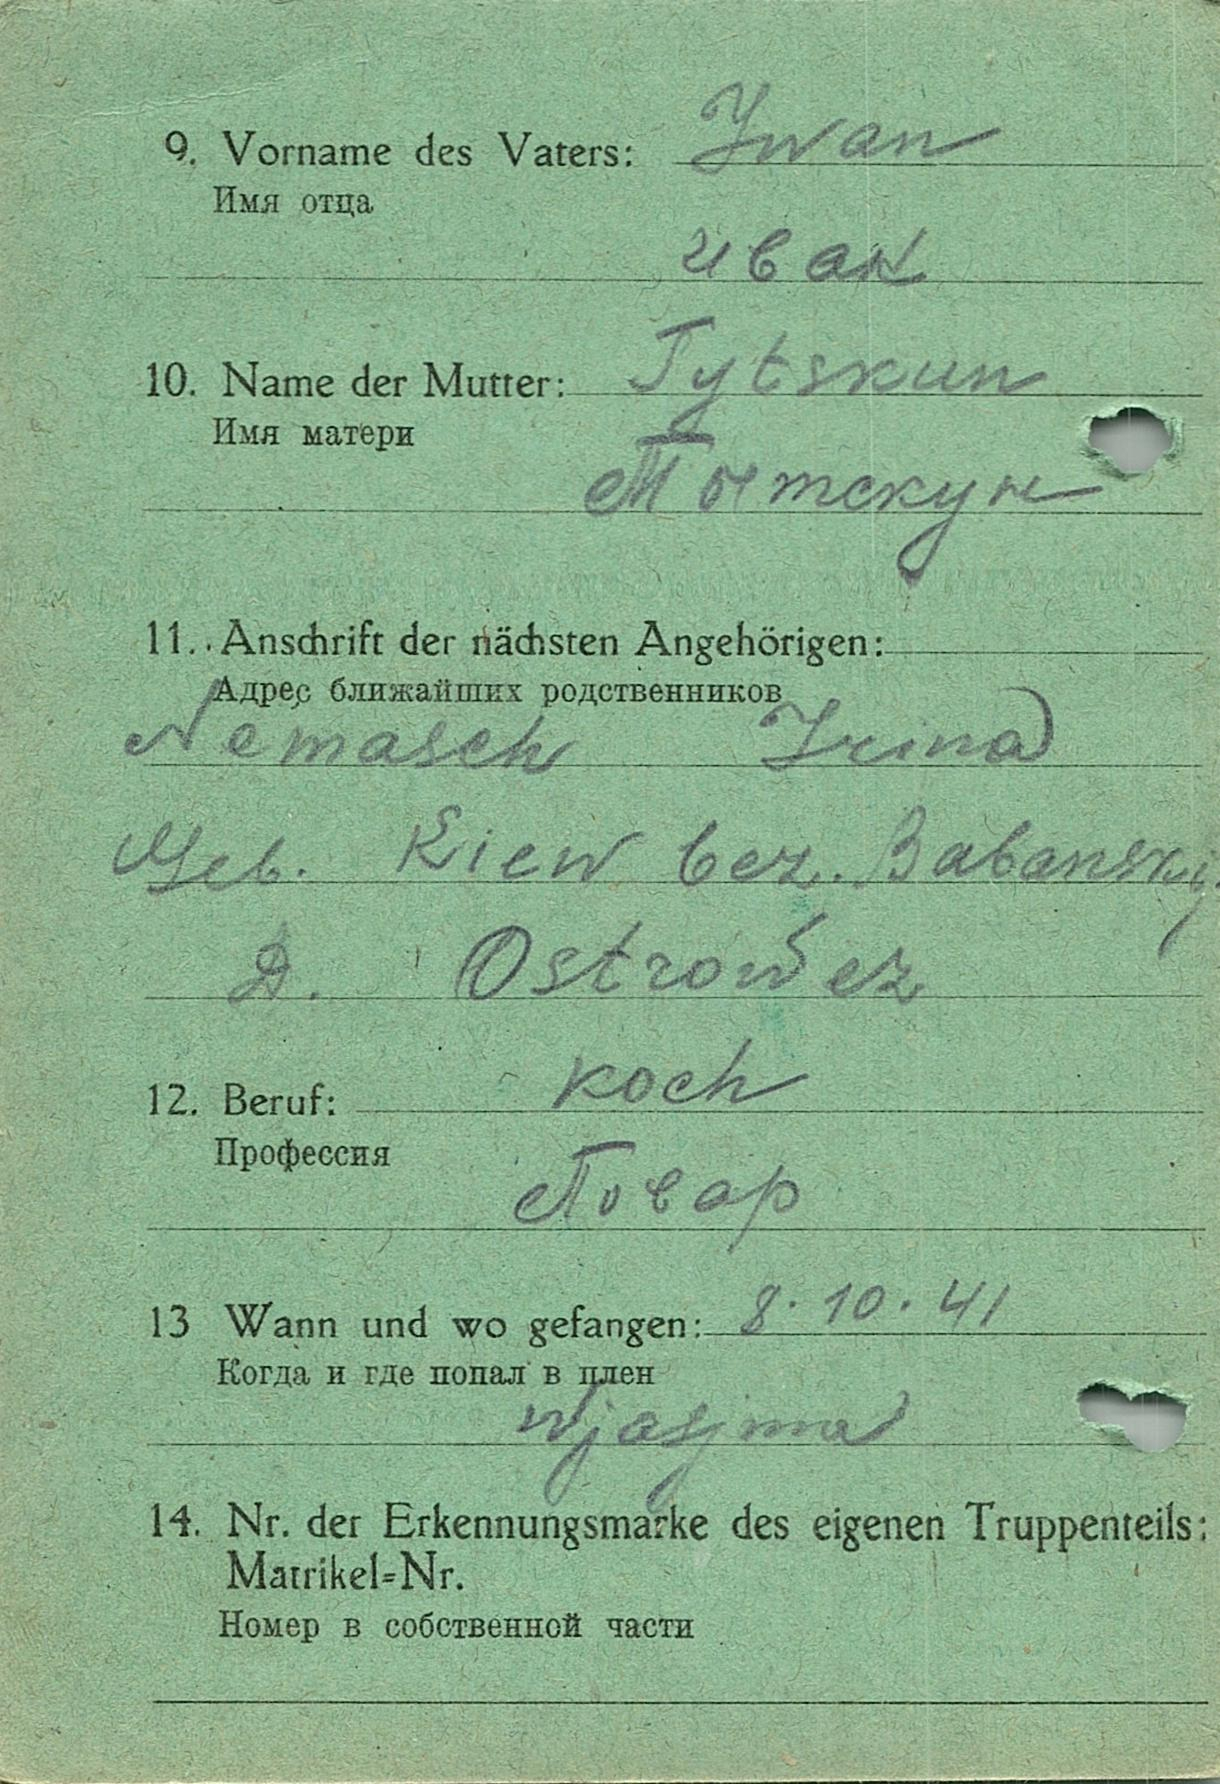 9. Vorname des Vaters: Iwan
Имя отца
иван
10. Name der Mutter: Tytskun
Имя матери
Тытскун
11. Anschrift der nächsten Angehörigen:
Адрес ближайших родственников
Nemasch Irina
Geb. Kiew bez. Babanskij
D. Ostrowez
12. Beruf: Koch
Профессия
Повар
13 Wann und wo gefangen: 8.10.41
Когда и где попал в плен
Wjasjma
14. Nr. der Erkennungsmarke des eigenen Truppenteils:
Matrikel=Nr.
Номер в собственной части